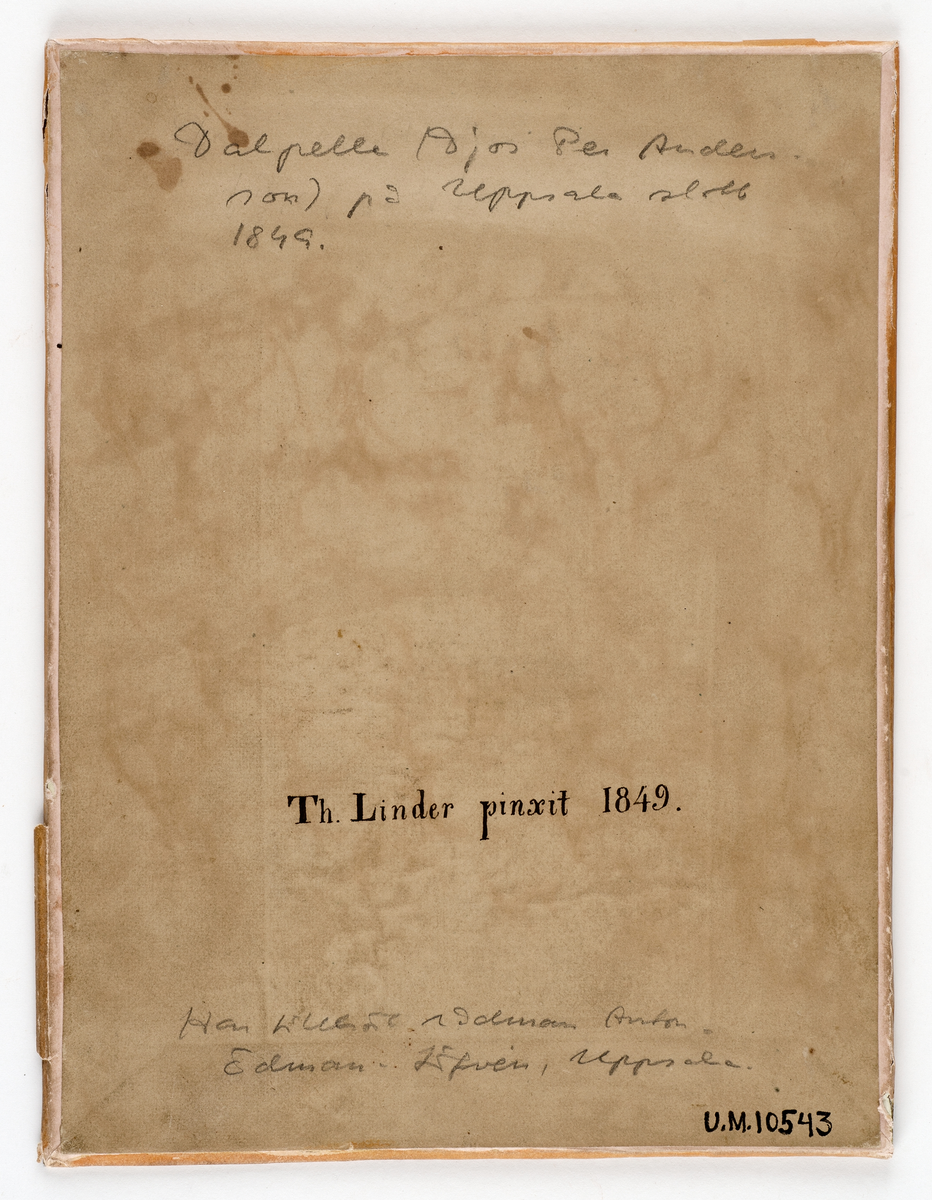 Dalpelle (Djos Per Anders-
son) på Uppsala slott
1849.
Th. Linder pinxit 1849.
Har tillhört rådman Anton
Edman. Löfven, Uppsala.
U.M.10543